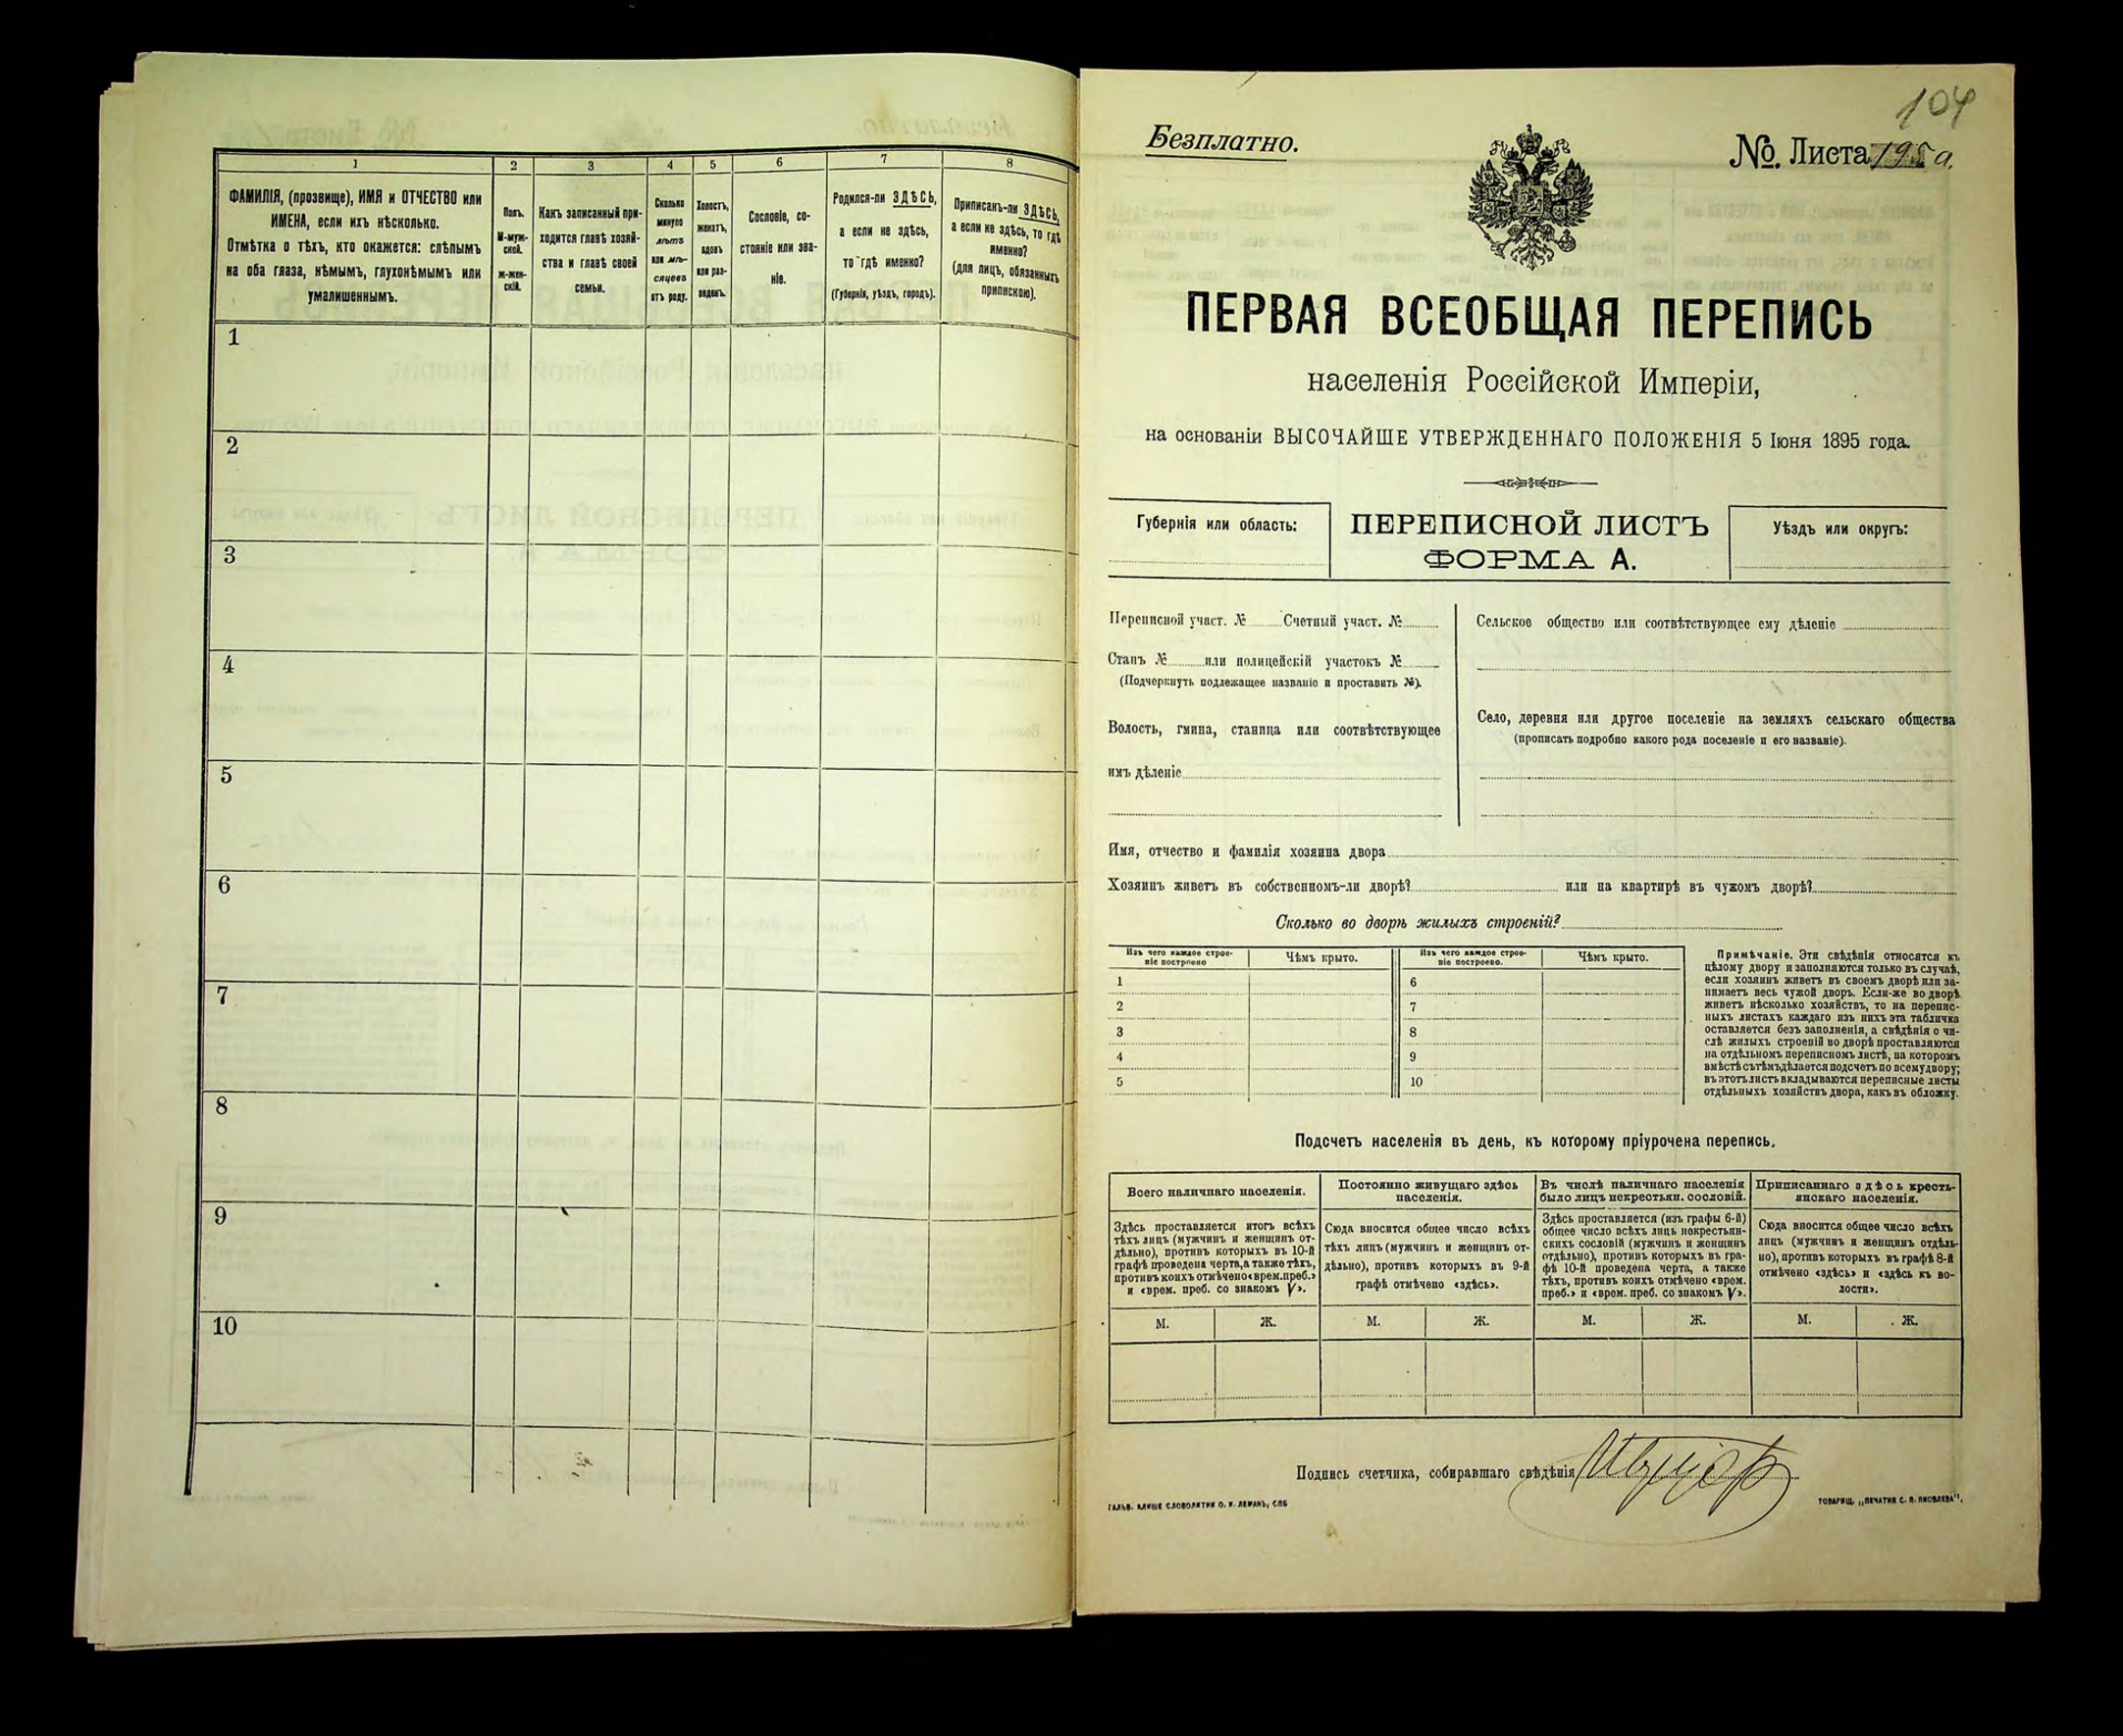 1
2
3
4
5
6
7
8
ФАМИЛІЯ, (прозвище), ИМЯ и ОТЧЕСТВО или
ИМЕНА, если ихъ нѣсколько.
Отмѣтка о тѣхъ, кто окажется: слѣпымъ
на оба глаза, нѣмымъ, глухонѣмымъ или
умалишеннымъ.
Полъ.
М-муж-
ской.
Ж-жен-
скій.
Какъ записанный при-
ходится главѣ хозяй-
ства и главѣ своей
семьи.
Сколько
минуло
лѣтъ
или мѣ-
сяцевъ
отъ роду.
Холостъ,
женатъ,
вдовъ
или раз-
веденъ.
Сословіе, со-
стояніе или зва-
ніе.
Родился-ли ЗДѢСЬ,
а если не здѣсь,
то гдѣ именно?
(Губернія, уѣздъ, городъ).
Приписанъ-ли ЗДѢСЬ,
а если не здѣсь, то гдѣ
именно?
(для лицъ, обязанныхъ
припискою).
1
2
3
4
5
6
7
8
9
10
104
Безплатно.
№. Листа 195 а.
ПЕРВАЯ ВСЕОБЩАЯ ПЕРЕПИСЬ
населенія Россійской Имперіи,
на основаніи ВЫСОЧАЙШЕ УТВЕРЖДЕННАГО ПОЛОЖЕНІЯ 5 Іюня 1895 года.
Губернія или область:
ПЕРЕПИСНОЙ ЛИСТЪ
ФОРМА А.
Уѣздъ или округъ:
Переписной участ. № Счетный участ. №
Станъ № или полицейскій участокъ №
(Подчеркнуть подлежащее названіе и проставить №).
Волость, гмина, станица или соотвѣтствующее
имъ дѣленіе
Сельское общество или соотвѣтствующее ему дѣленіе
Село, деревня или другое поселеніе на земляхъ сельскаго общества
(прописать подробно какого рода поселеніе и его названіе).
Имя, отчество и фамилія хозяина двора
Хозяинъ живетъ въ собственномъ-ли дворѣ? или на квартирѣ въ чужомъ дворѣ?
Сколько во дворѣ жилыхъ строеній?
Изъ чего каждое строе-
ніе построено
Чѣмъ крыто.
Изъ чего каждое строе-
ніе построено.
Чѣмъ крыто.
1
2
3
4
5
6
7
8
9
10
Примѣчаніе. Эти свѣдѣнія относятся къ
цѣлому двору и заполняются только въ случаѣ,
если хозяинъ живетъ въ своемъ дворѣ или за-
нимаетъ весь чужой дворъ. Если-же во дворѣ
живетъ нѣсколько хозяйствъ, то на перепис-
ныхъ листахъ каждаго изъ нихъ эта табличка
оставляется безъ заполненія, а свѣдѣнія о чи-
слѣ жилыхъ строеній во дворѣ проставляются
на отдѣльномъ переписномъ листѣ, на которомъ
вмѣстѣ съ тѣмъ дѣлается подсчетъ по всему двору;
въ этотъ листъ вкладываются переписные листы
отдѣльныхъ хозяйствъ двора, какъ въ обложку.
Подсчетъ населенія въ день, къ которому пріурочена перепись.
Всего наличнаго населенія.
Постоянно живущаго здѣсь
населенія.
Въ числѣ наличнаго населенія
было лицъ некрестьян. сословій.
Приписаннаго здѣсь кресть-
янскаго населенія.
Здѣсь проставляется итогъ всѣхъ
тѣхъ лицъ (мужчинъ и женщинъ от-
дѣльно), противъ которыхъ въ 10-й
графѣ проведена черта, а также тѣхъ,
противъ коихъ отмѣчено «врем. преб.»
и «врем. преб. со знакомъ V».
Сюда вносится общее число всѣхъ
тѣхъ лицъ (мужчинъ и женщинъ от-
дѣльно), противъ которыхъ въ 9-й
графѣ отмѣчено «здѣсь».
Здѣсь проставляется (изъ графы 6-й)
общее число всѣхъ лицъ некрестьян-
скихъ сословій (мужчинъ и женщинъ
отдѣльно), противъ которыхъ въ гра-
фѣ 10-й проведена черта, а также
тѣхъ, противъ коихъ отмѣчено «врем.
преб.» и «врем. преб. со знакомъ V».
Сюда вносится общее число всѣхъ
лицъ (мужчинъ и женщинъ отдѣль-
но), противъ которыхъ въ графѣ 8-й
отмѣчено «здѣсь» и «здѣсь къ во-
лости».
М.
Ж.
М.
Ж.
М.
Ж.
М.
Ж.
Подпись счетчика, собиравшаго свѣдѣнія
ГАЛЬВ. КЛИШЕ СЛОВОЛИТНИ О. И. ЛЕМАНЪ, СПБ
ТОВАРИЩ. „ПЕЧАТНЯ С. П. ЯКОВЛЕВА“.